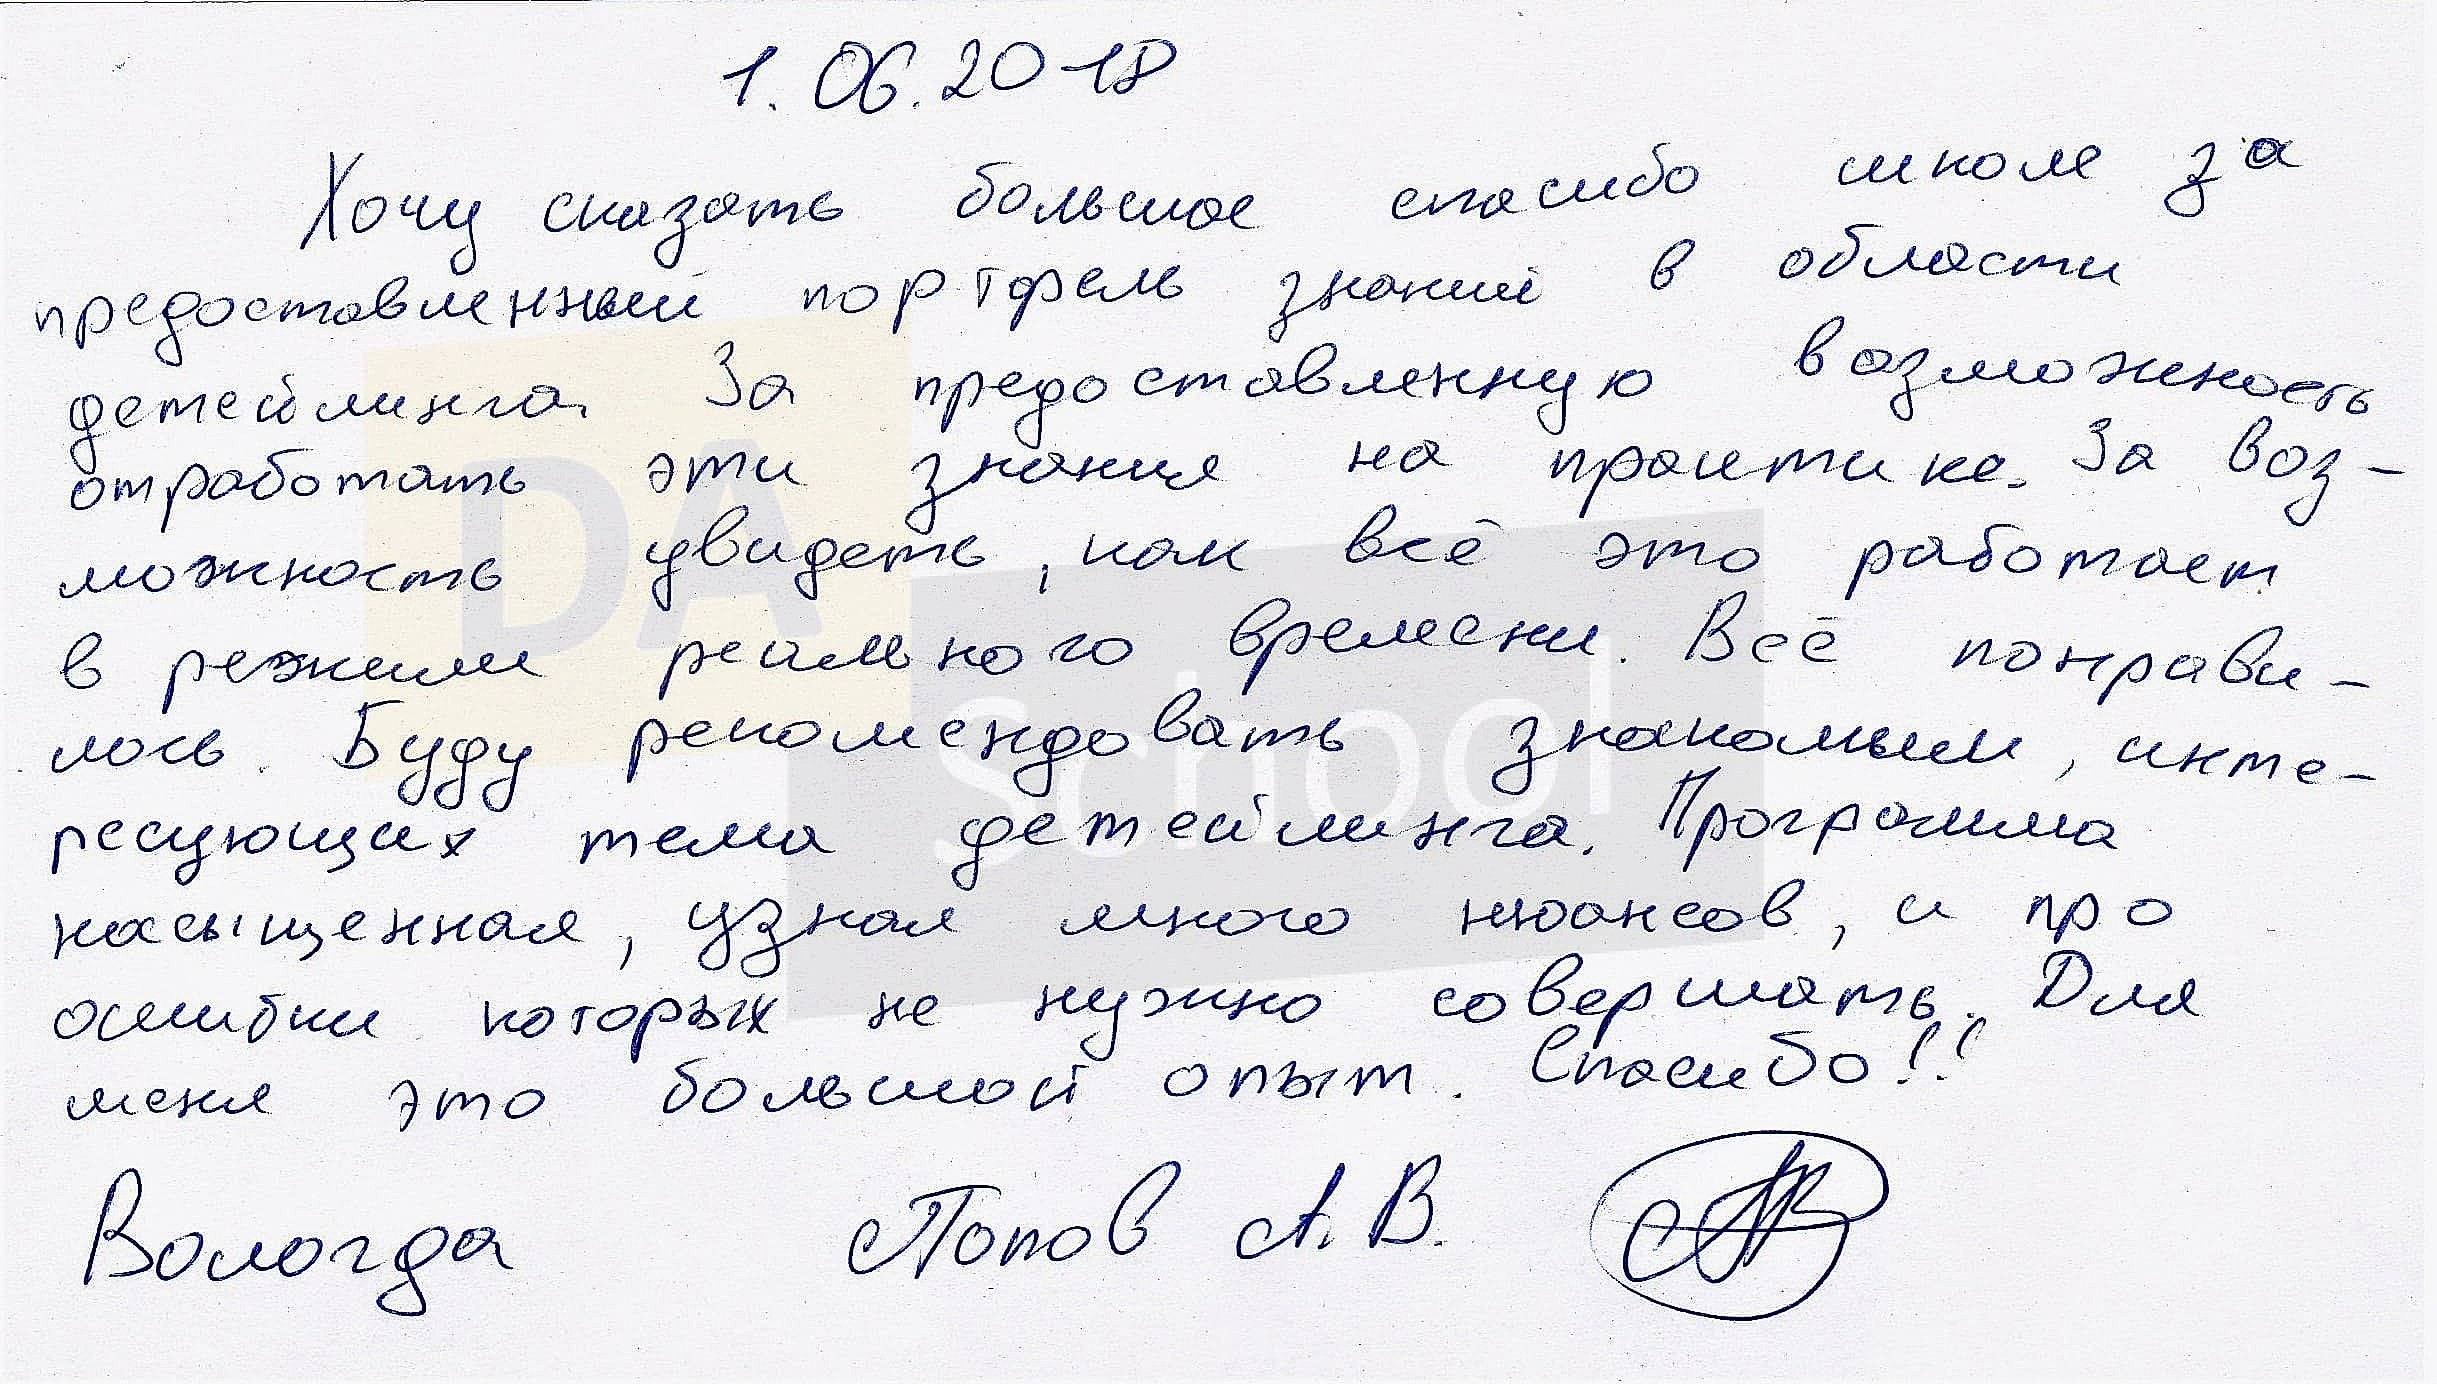 1.06.2018
Хочу сказать большое спасибо школе за
предоставленный портфель знаний в области
детейлинга. За предоставленную возможность
отработать эти знания на практике. За воз-
можность увидеть, как всё это работает
в режиме реального времени. Всё понрави-
лось. Буду рекомендовать знакомым, инте-
ресующих тема детейлинга. Программа
насыщенная, узнал много нюансов, и про
ошибки которых не нужно совершать. Для
меня это большой опыт. Спасибо!!
Вологда Попов А.В.
DA
School